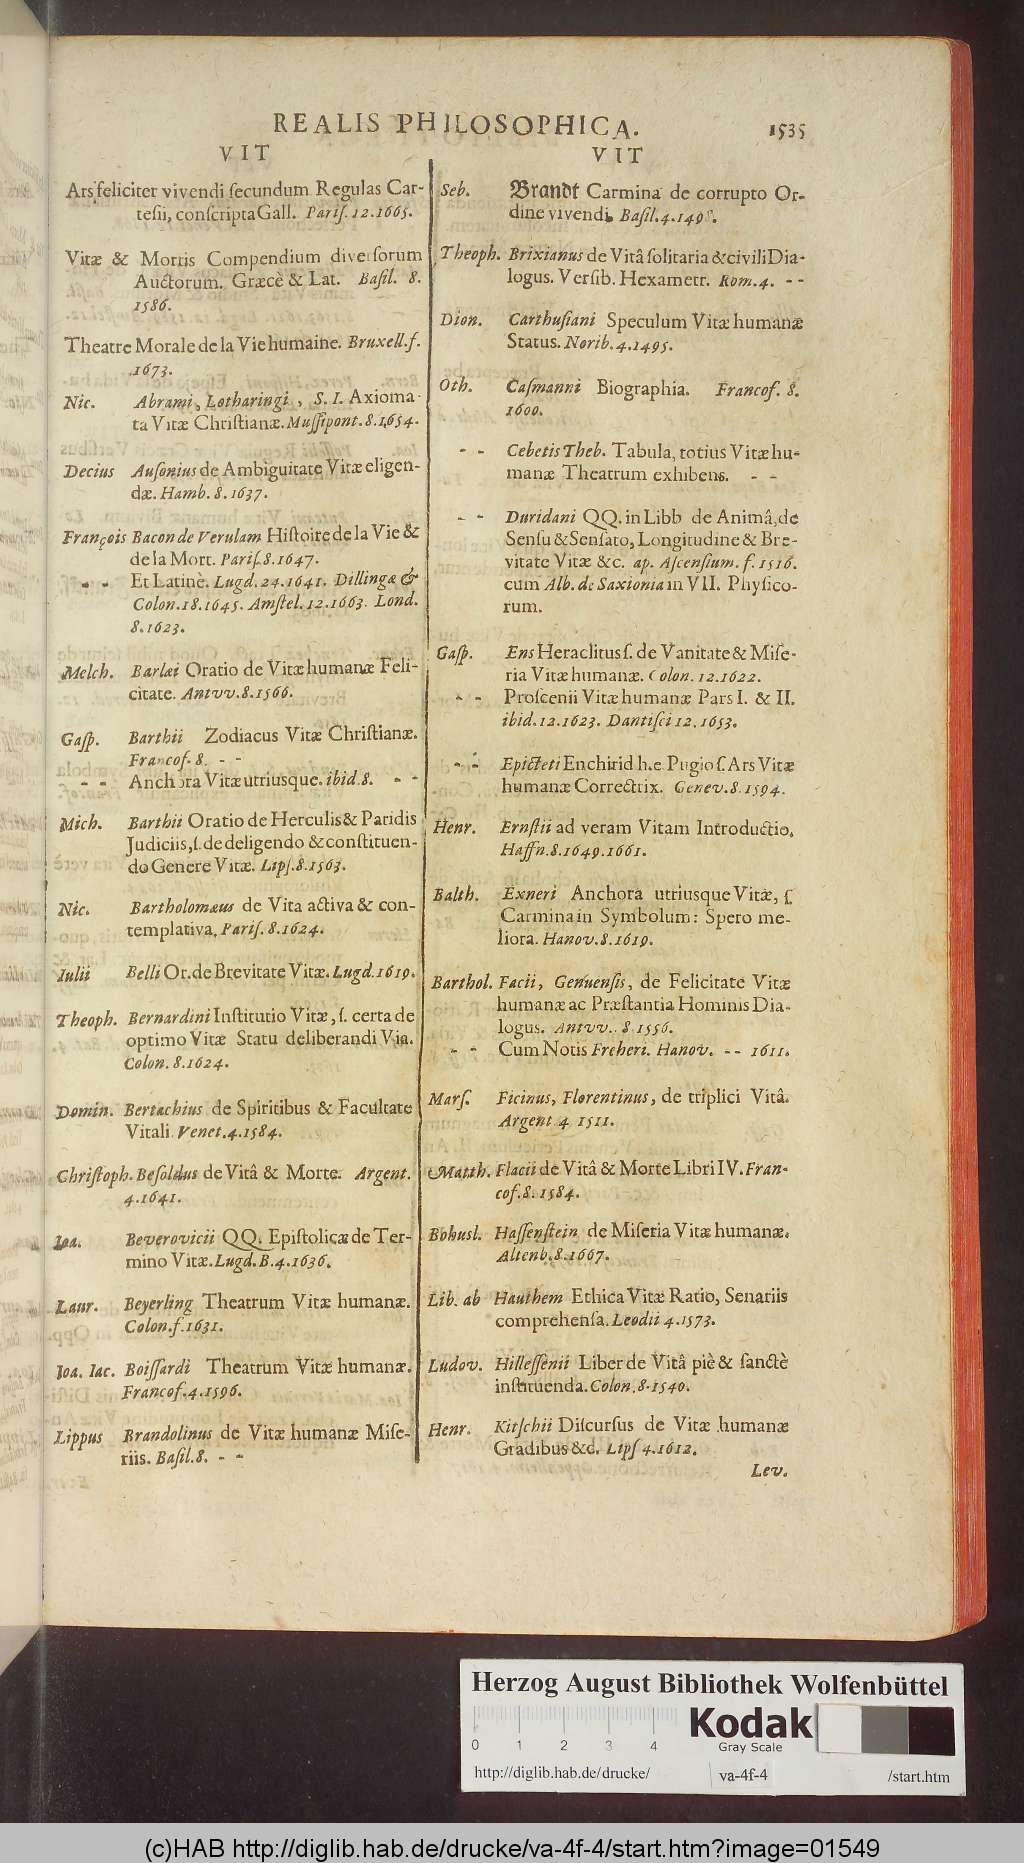 REALIS PHILOSOPHICA. 1535
VIT
Ars feliciter vivendi ſecundum Regulas Car-
teſii, conſcripta Gall. Pariſ. 12. 1665.
Vitæ & Mortis Compendium diverſorum
Auctorum. Græcè & Lat. Baſil. 8.
1586.
Theatre Morale de la Vie humaine. Bruxell. f.
1673.
Nic. Abrami, Lotharingi, S. I. Axioma-
ta Vitæ Chriſtianæ. Muſſipont. 8. 1654.
Decius Auſonius de Ambiguitate Vitæ eligen-
dæ. Hamb. 8. 1637.
François Bacon de Verulam Hiſtoire de la Vie &
de la Mort. Pariſ. 8. 1647.
- - Et Latinè. Lugd. 24. 1641. Dillingæ &
Colon. 18. 1645. Amſtel. 12. 1663. Lond.
8. 1623.
Melch. Barlæi Oratio de Vitæ humanæ Feli-
citate. Antvv. 8. 1566.
Gaſp. Barthii Zodiacus Vitæ Chriſtianæ.
Francof. 8. - -
- - Anchora Vitæ utriusque. ibid. 8. - -
Mich. Barthii Oratio de Herculis & Paridis
Judiciis, ſ. de deligendo & conſtituen-
do Genere Vitæ. Lipſ. 8. 1563.
Nic. Bartholomæus de Vita activa & con-
templativa. Pariſ. 8. 1624.
Iulii Belli Or. de Brevitate Vitæ. Lugd. 1619.
Theoph. Bernardini Inſtitutio Vitæ, ſ. certa de
optimo Vitæ Statu deliberandi Via.
Colon. 8. 1624.
Domin. Bertachius de Spiritibus & Facultate
Vitali. Venet. 4. 1584.
Chriſtoph. Beſoldus de Vitâ & Morte. Argent.
4. 1641.
Ioa. Beverovicii QQ. Epiſtolicæ de Ter-
mino Vitæ. Lugd. B. 4. 1636.
Laur. Beyerling Theatrum Vitæ humanæ.
Colon. f. 1631.
Ioa. Iac. Boiſſardi Theatrum Vitæ humanæ.
Francof. 4. 1596.
Lippus Brandolinus de Vitæ humanæ Miſe-
riis. Baſil. 8. - -
VIT
Seb. Brandt Carmina de corrupto Or-
dine vivendi. Baſil. 4.
Theoph. Brixianus de Vitâ ſolitaria & civili Dia-
logus. Verſib. Hexametr. Rom. 4. - -
Dion. Carthuſiani Speculum Vitæ humanæ
Status. Norib. 4. 1495.
Oth. Caſmanni Biographia. Francof. 8.
1600.
- - Cebetis Theb. Tabula, totius Vitæ hu-
manæ Theatrum exhibens. - -
- - Duridani QQ. in Libb de Animâ, de
Senſu & Senſato, Longitudine & Bre-
vitate Vitæ &c. ap. Aſcenſium. f. 1516.
cum Alb. de Saxionia in VII. Phyſico-
rum.
Gaſp. Ens Heraclitus ſ. de Vanitate & Miſe-
ria Vitæ humanæ. Colon. 12. 1622.
- - Proſcenii Vitæ humanæ Pars I. & II.
ibid. 12. 1623. Dantiſci 12. 1653.
- - Epicteti Enchirid h.e. Pugio ſ. Ars Vitæ
humanæ Correctrix. Genev. 8. 1594.
Henr. Ernſtii ad veram Vitam Introductio.
Haffn. 8. 1649. 1661.
Balth. Exneri Anchora utriusque Vitæ, ſ
Carmina in Symbolum: Spero me-
liora. Hanov. 8. 1619.
Barthol. Facii, Genuenſis, de Felicitate Vitæ
humanæ ac Præſtantia Hominis Dia-
logus. Antvv. 8. 1556.
- - Cum Notis Freheri. Hanov. -- 1611.
Marſ. Ficinus, Florentinus, de triplici Vitâ.
Argent 4 1511.
Matth. Flacii de Vitâ & Morte Libri IV. Fran-
cof. 8. 1584.
Bohusl. Haſſenſtein de Miſeria Vitæ humanæ.
Altenb. 8. 1667.
Lib. ab Hauthem Ethica Vitæ Ratio, Senariis
comprehenſa. Leodii 4. 1573.
Ludov. Hilleſſenii Liber de Vitâ piè & ſanctè
inſtituenda. Colon. 8. 1540.
Henr. Kitſchii Diſcurſus de Vitæ humanæ
Gradibus &c. Lipſ 4. 1612.
Lev.
Herzog August Bibliothek Wolfenbüttel
0 1 2 3 4
Kodak
Gray Scale
http://diglib.hab.de/drucke/ va-4f-4 /start.htm
(c)HAB http://diglib.hab.de/drucke/va-4f-4/start.htm?image=01549